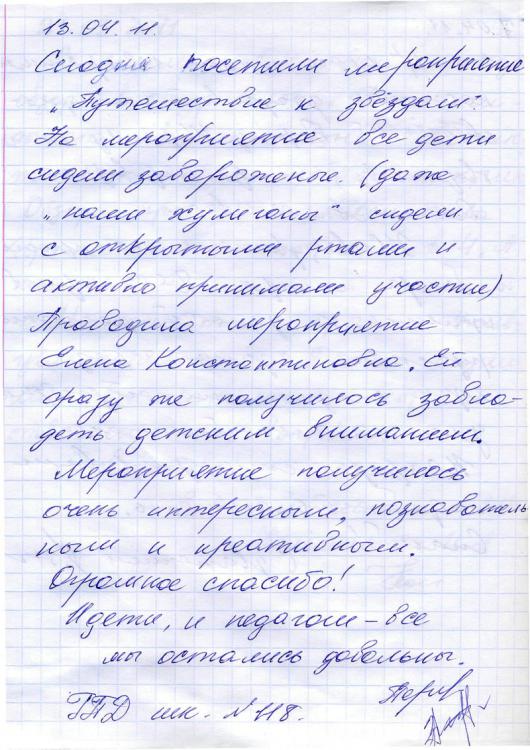 13.04.11.
Сегодня посетили мероприятие
„Путешествие к звёздам".
На мероприятие все дети
сидели завороженые. (даже
„наши хулиганы" сидели
с открытыми ртами и
активно принимали участие)
Проводила мероприятие
Елена Константиновна. Ей
сразу же получилось завла-
деть детским вниманием.
Мероприятие получилось
очень интересным, познаватель
ным и креативным.
Огромное спасибо!
И дети, и педагоги – все
мы остались довольны.
ГПД шк. №118.